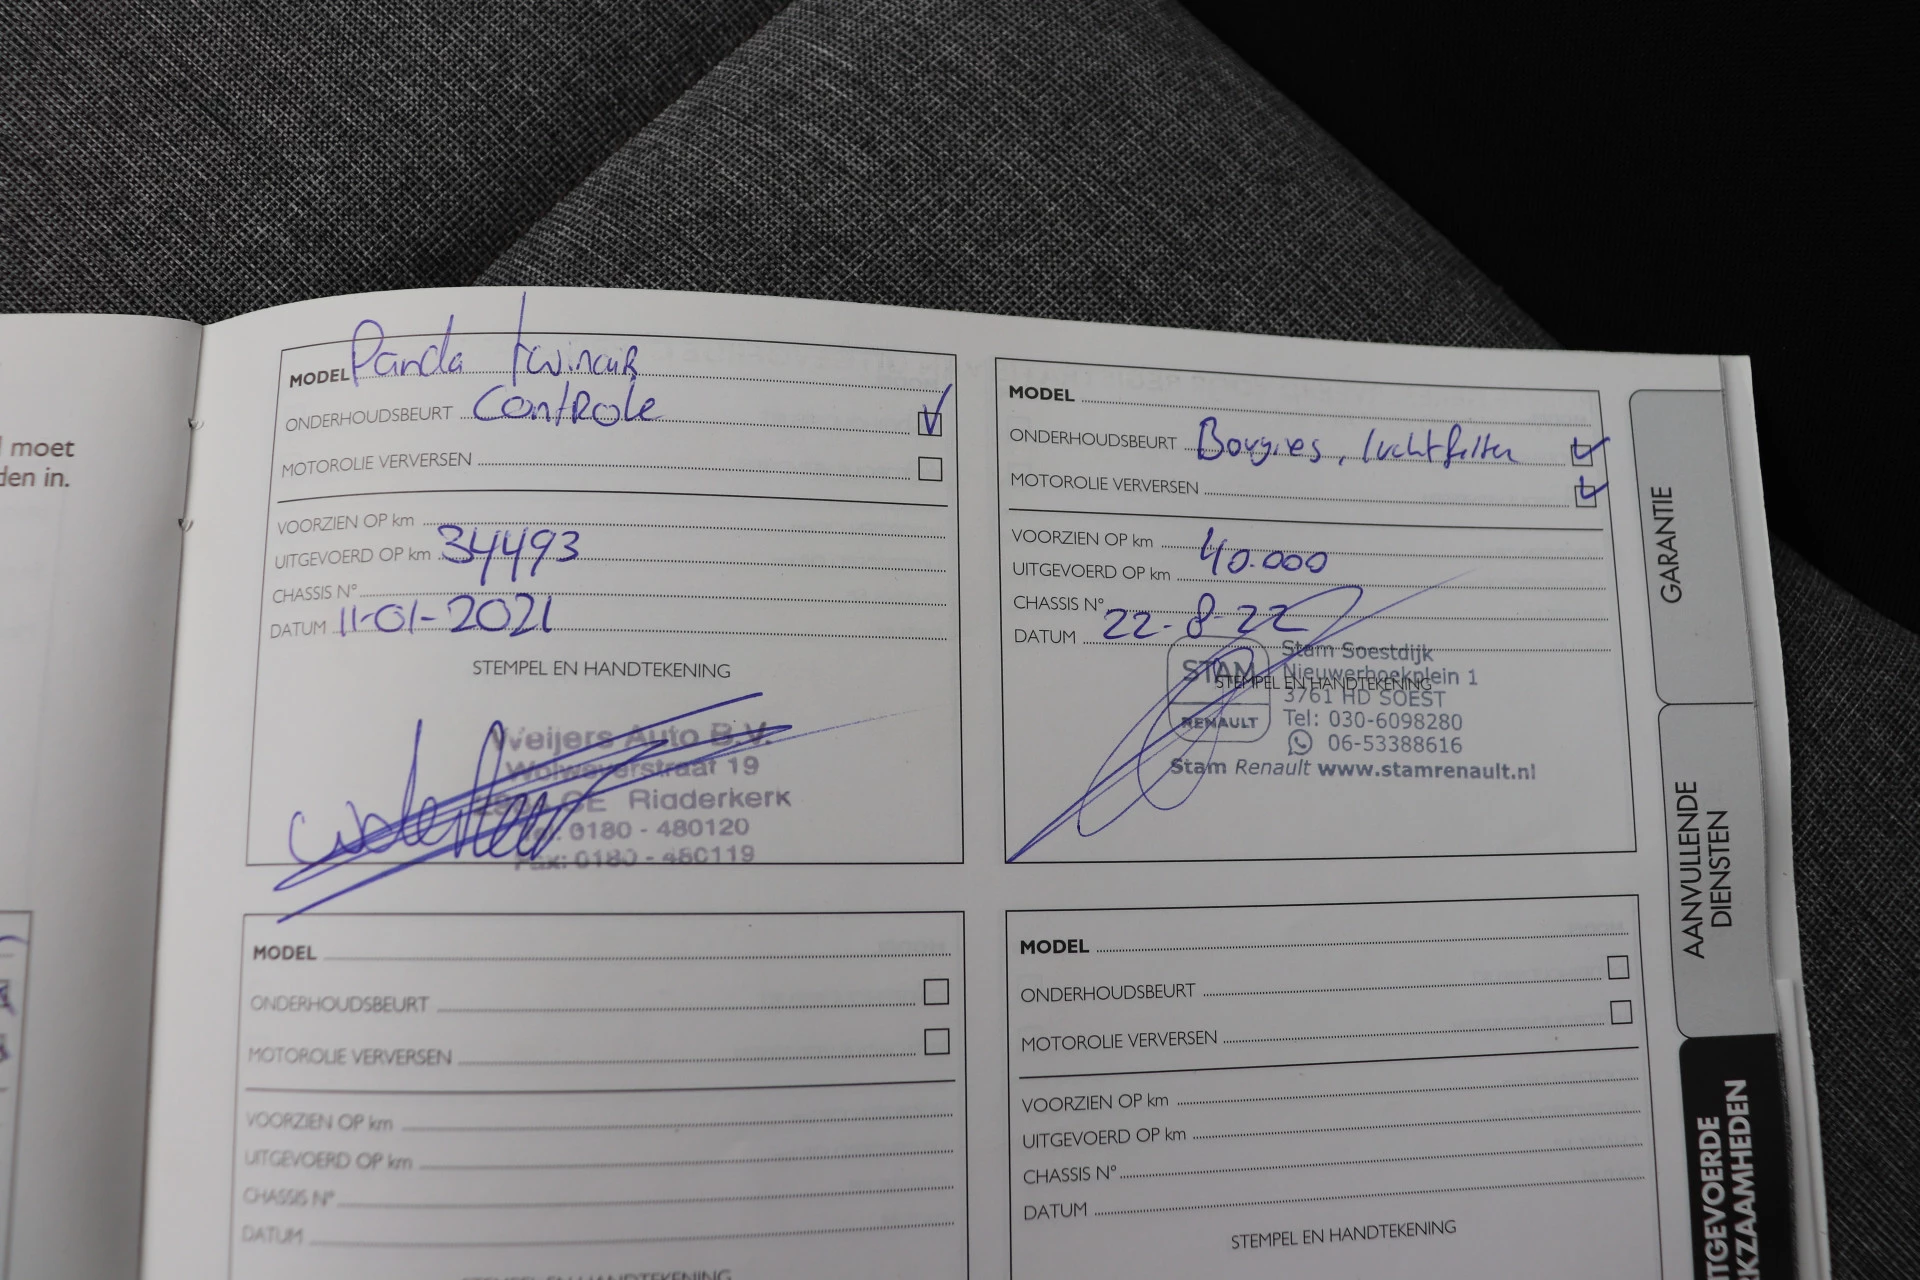 moet
den in.
MODEL Panda twinair
ONDERHOUDSBEURT Controle
MOTOROLIE VERVERSEN
VOORZIEN OP km
UITGEVOERD OP km 34493
CHASSIS N°
DATUM 11-01-2021
STEMPEL EN HANDTEKENING
Weijers Auto B.V.
Wolweverstraat 19
CE Ridderkerk
Tel: 0180 - 480120
Fax: 0180 - 480119
MODEL
ONDERHOUDSBEURT Bougies, luchtfilter
MOTOROLIE VERVERSEN
VOORZIEN OP km
UITGEVOERD OP km 40.000
CHASSIS N°
DATUM 22-8-22
STEMPEL EN HANDTEKENING
STAM
RENAULT
Stam Soestdijk
Nieuwerhoekplein 1
3761 HD SOEST
Tel: 030-6098280
06-53388616
Stam Renault www.stamrenault.nl
MODEL
ONDERHOUDSBEURT
MOTOROLIE VERVERSEN
VOORZIEN OP km
UITGEVOERD OP km
CHASSIS N°
DATUM
STEMPEL EN HANDTEKENING
MODEL
ONDERHOUDSBEURT
MOTOROLIE VERVERSEN
VOORZIEN OP km
UITGEVOERD OP km
CHASSIS N°
DATUM
STEMPEL EN HANDTEKENING
GARANTIE
AANVULLENDE
DIENSTEN
ITGEVOERDE
KZAAMHEDEN